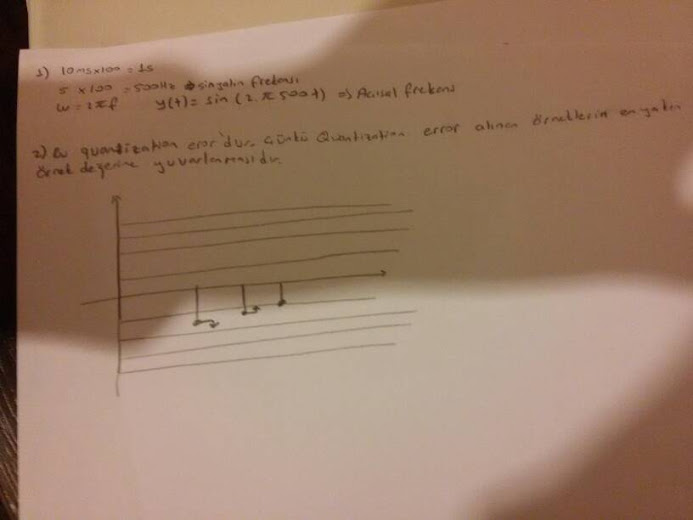 1) 10ms x 100 = 1s
5 x 100 = 500Hz sinyalin frekansı
w = 2πf y(t) = sin (2.π500t) => Açısal frekans
2) Bu quantization eror'dur. Çünkü Quantization error alınan örneklerin en yakın
örnek değerine yuvarlanmasıdır.